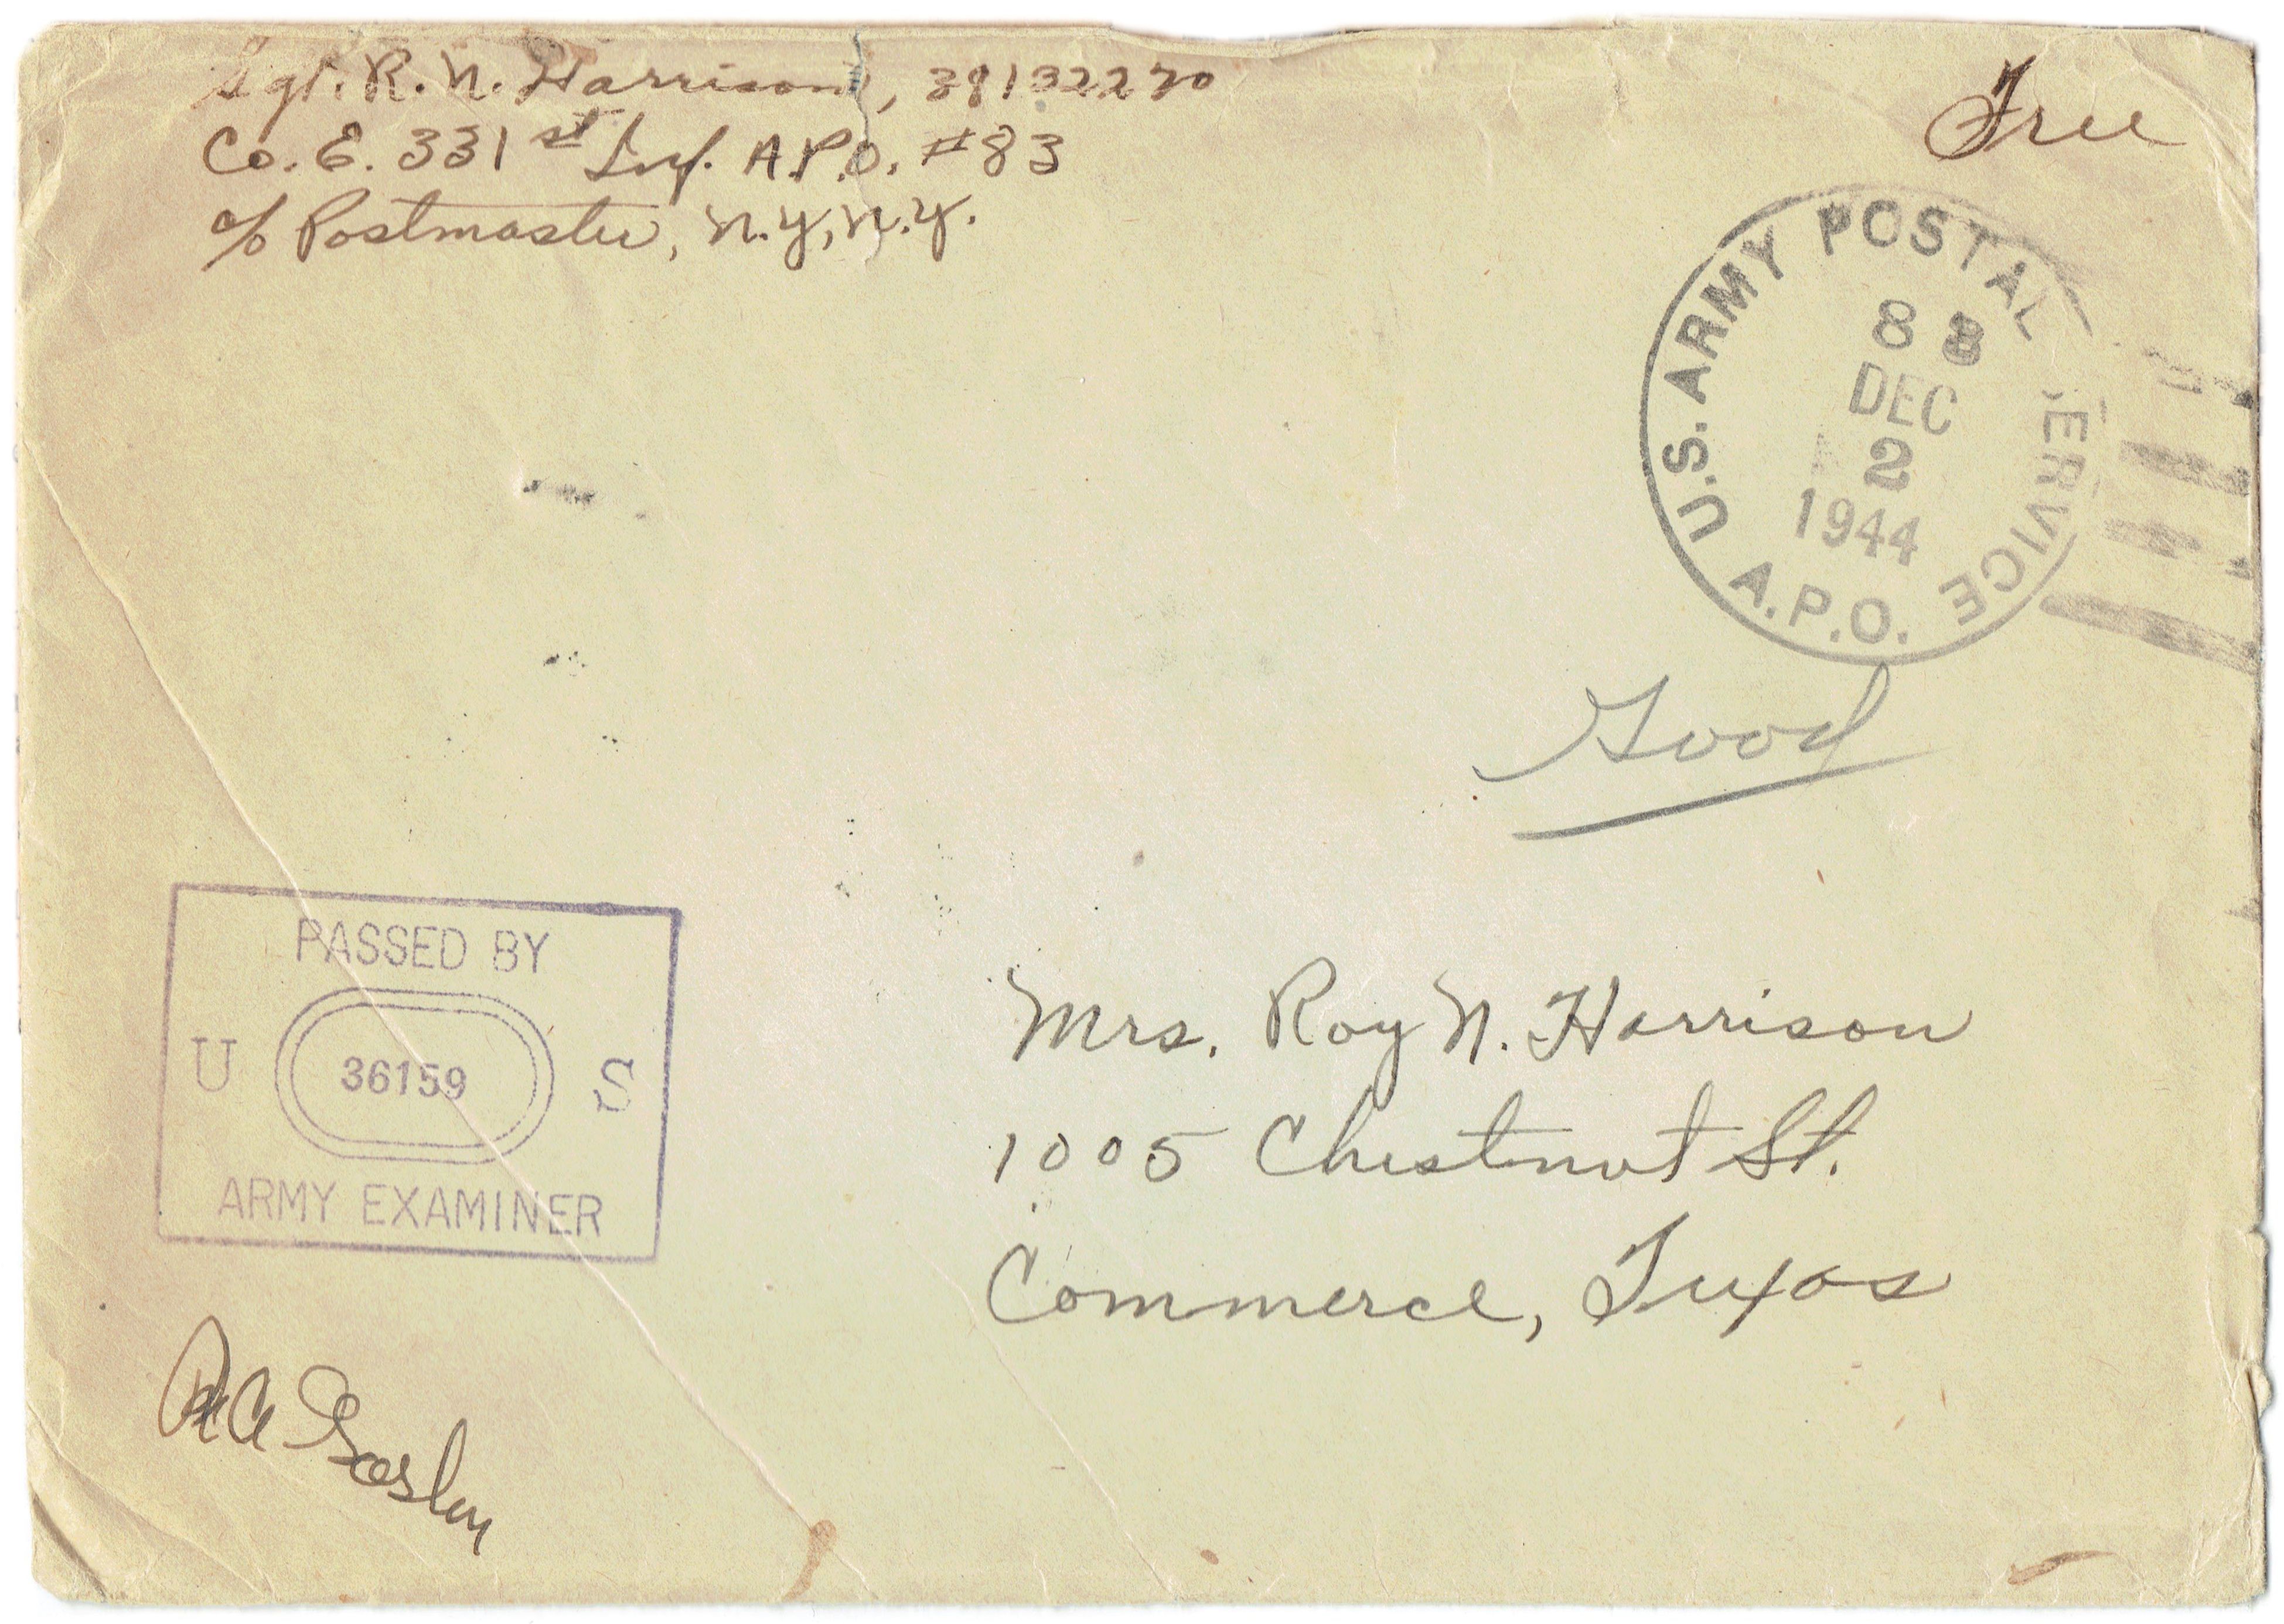 Sgt. R. N. Harrison, 38132220
Co. E. 331st Inf. A.P.O. #83
c/o Postmaster, N.Y., N.Y.
Free
U.S. ARMY POSTAL SERVICE
A.P.O.
DEC
2
1944
Good
PASSED BY
U 36159 S
ARMY EXAMINER
Mrs. Roy N. Harrison
1005 Chestnut St.
Commerce, Texas